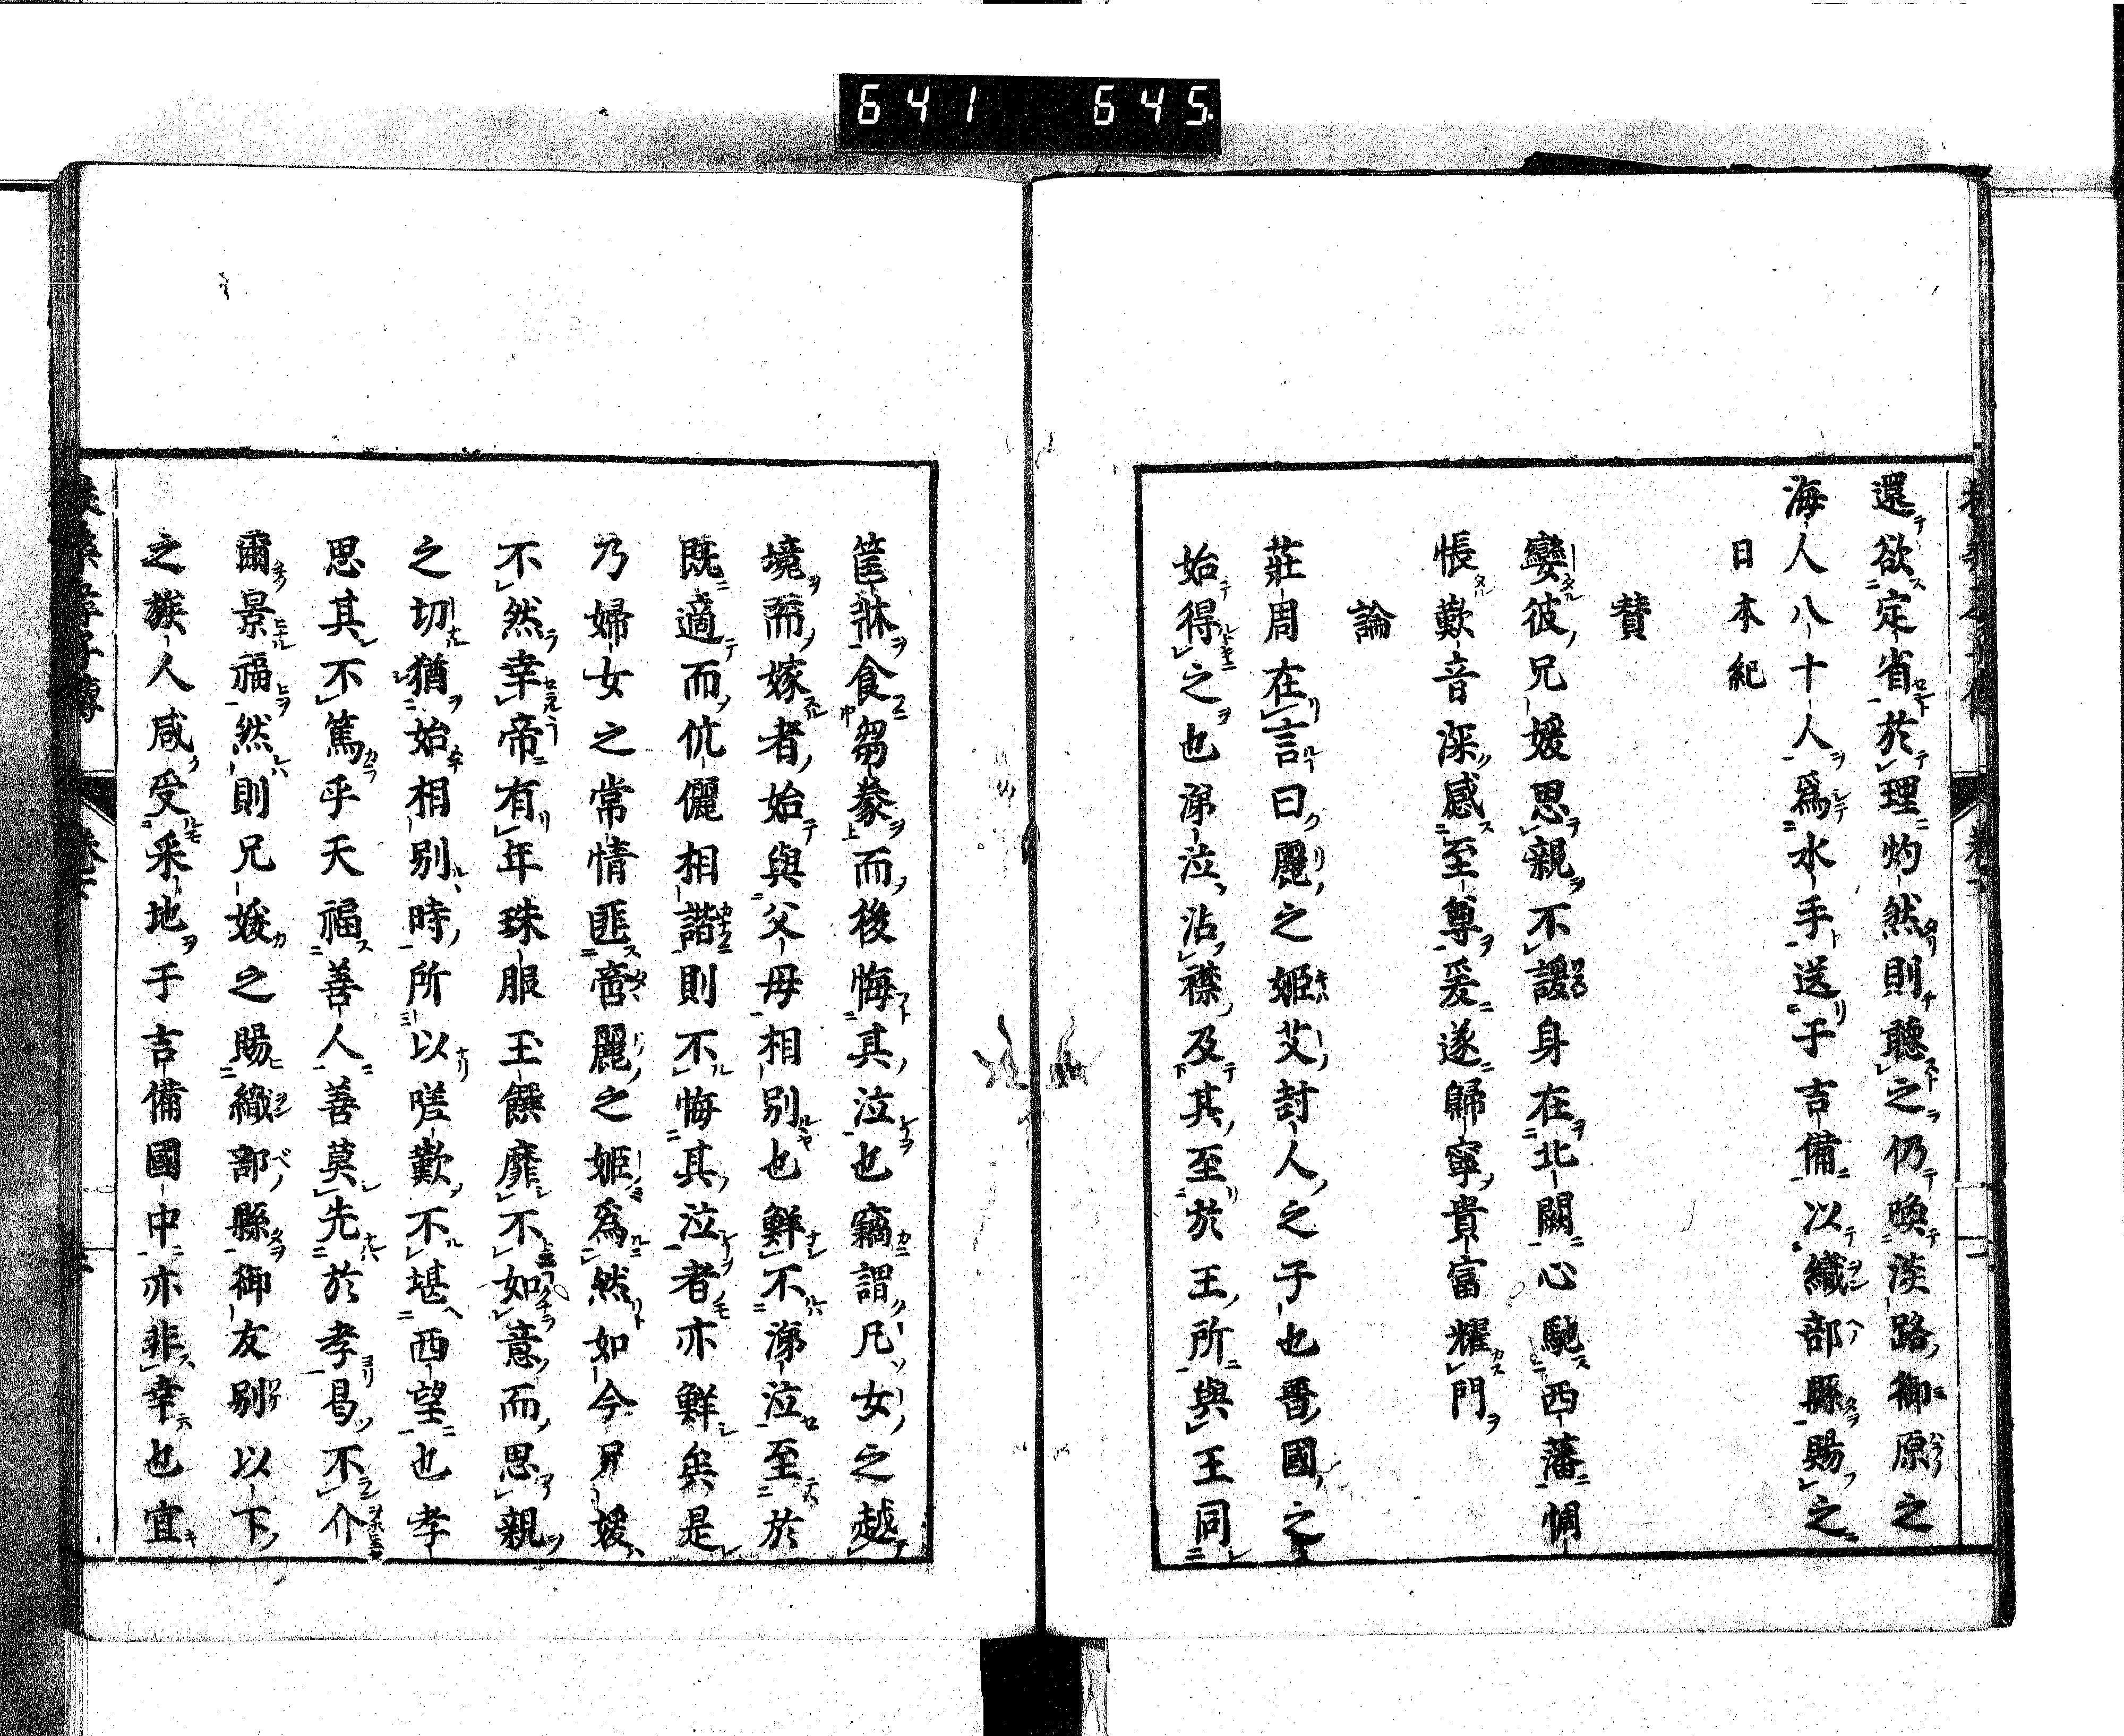 641 645
還欲定省於理灼然則聽之仍喚淡路御原之
海人八十人爲水手送于吉備以織部縣賜之
日本紀
賛
孌彼兄媛思親不諼身在北闕心馳西藩惆
悵歎音深感至尊爰遂歸寧貴富耀門
論
莊周在言曰麗之姬艾封人之子也晋國之
始得之也涕泣沾襟及其至於王所與王同
筐牀食芻豢而後悔其泣也竊謂凡女之越
境而嫁者始與父母相別也鮮不涕泣至於
既適而伉儷相諧則不悔其泣者亦鮮矣是
乃婦女之常情匪啻麗之姬爲然如今兄媛
不然幸帝有年珠服玉饌靡不如意而思親
之切猶始相別時所以嗟歎不堪西望也孝
思其不篤乎天福善人善莫先於孝曷不介
爾景福然則兄媛之賜織部縣御友別以下
之族人咸受采地于吉備國中亦非幸也宜